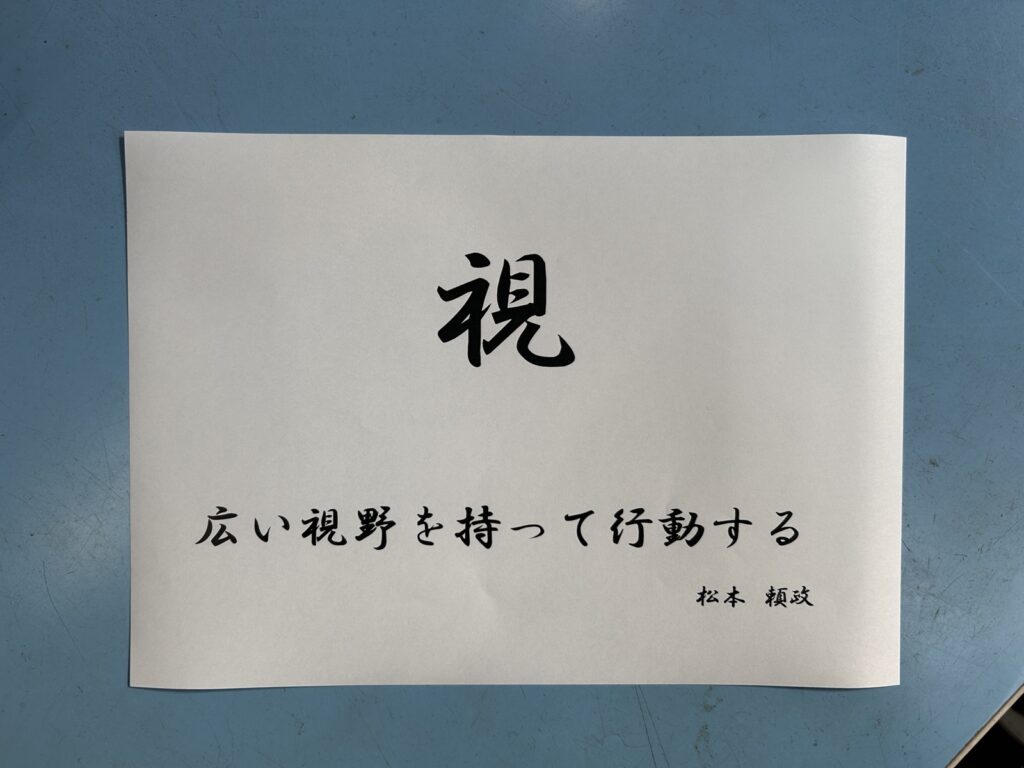 視
広い視野を持って行動する
松本 頼政